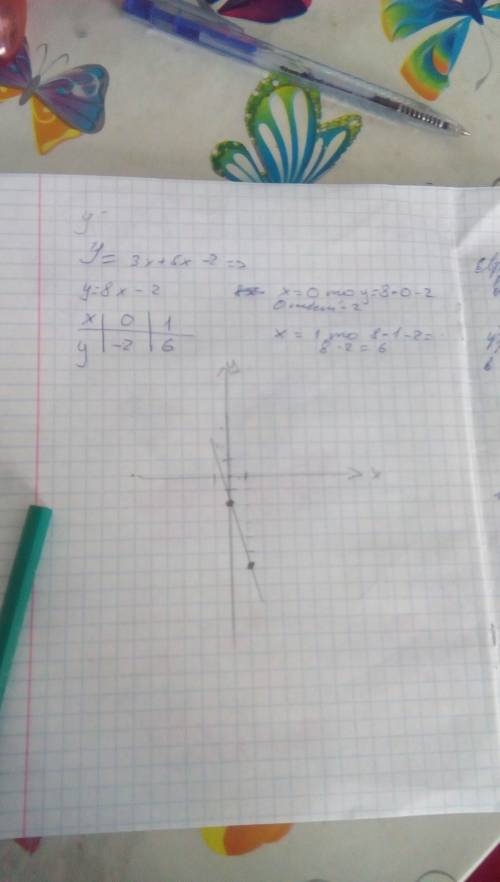 y =
y = 3x+5x -2 =>
y=8x-2
x=0 то y=8·0-2
Ответ-2
x 0 1
y -2 6
x = 1 то 8·1-2=
8-2=6
y
x